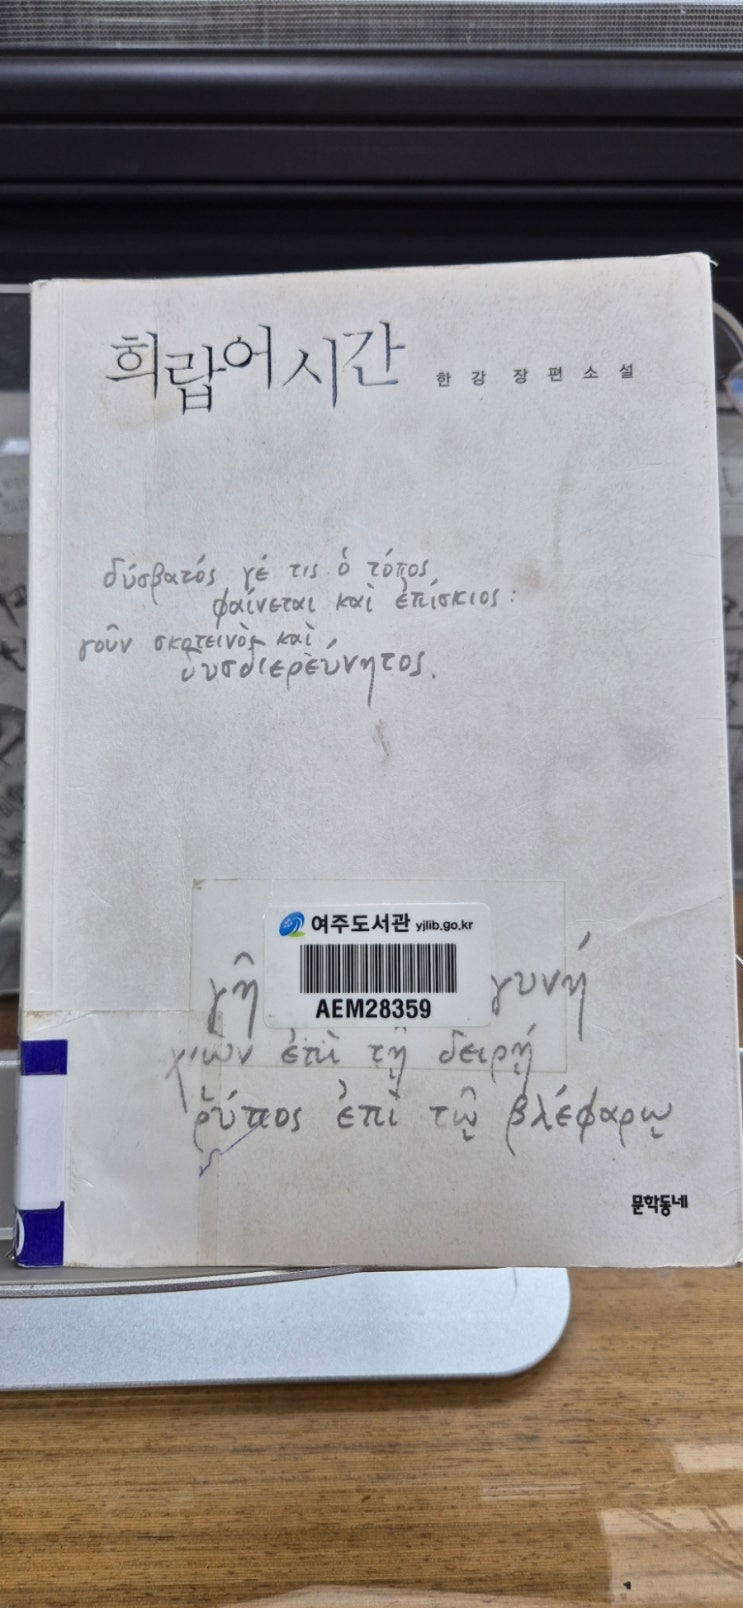 희랍어 시간
한강 장편소설
δύσβατός γέ τις ὁ τόπος
φαίνεται καὶ ἐπίσκιος:
γοῦν σκοτεινὸς καὶ
δυσδιερεύνητος.
여주도서관 yjlib.go.kr
AEM28359
γῆ γυνή
χιὼν ἐπὶ τῇ δειρῇ
ῥύπος ἐπὶ τῷ βλέφαρῳ
문학동네